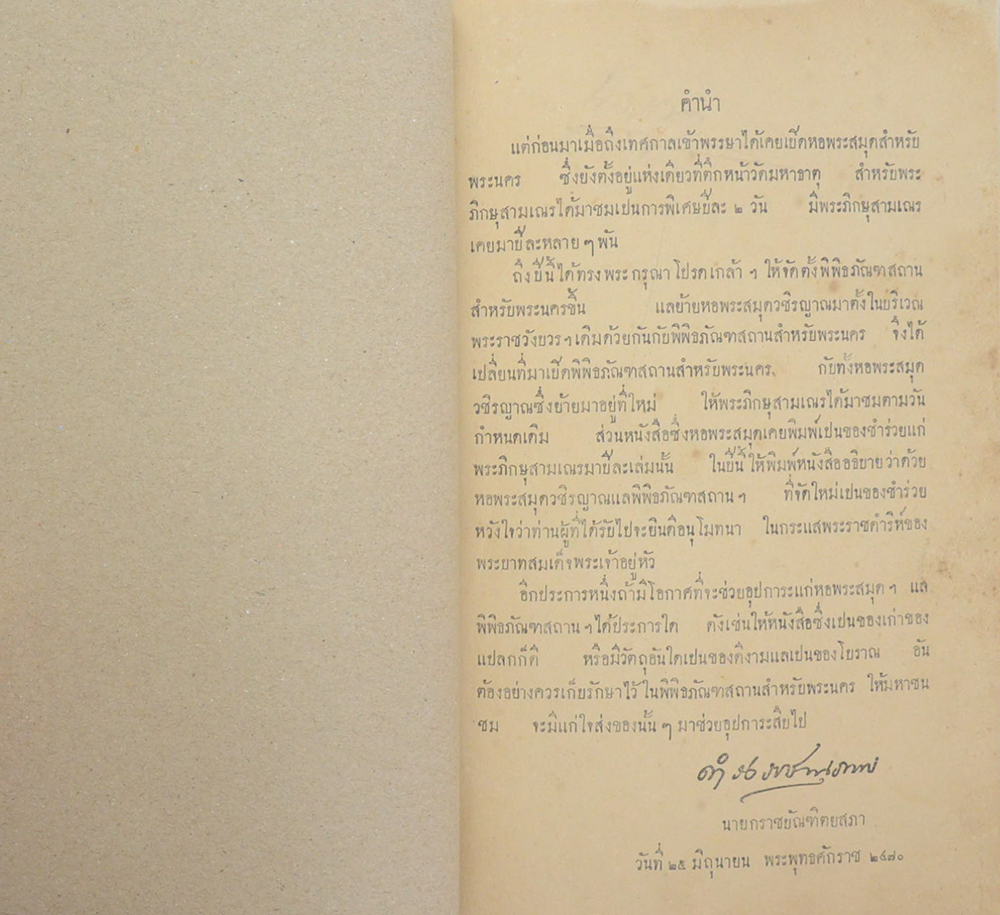 คำนำ
แต่ก่อนมาเมื่อถึงเทศกาลเข้าพรรษาได้เคยเปิดหอพระสมุดสำหรับ
พระนคร ซึ่งยังตั้งอยู่แห่งเดียวที่ตึกหน้าวัดมหาธาตุ สำหรับพระ
ภิกษุสามเณรได้มาชมเปนการพิเศษปีละ ๒ วัน มีพระภิกษุสามเณร
เคยมาปีละหลาย ๆ พัน
ถึงปีนี้ได้ทรงพระกรุณาโปรดเกล้า ฯ ให้จัดตั้งพิพิธภัณฑสถาน
สำหรับพระนครขึ้น แลย้ายหอพระสมุดวชิรญาณมาตั้งในบริเวณ
พระราชวังบวร ฯ เดิมด้วยกันกับพิพิธภัณฑสถานสำหรับพระนคร จึงได้
เปลี่ยนที่มาเปิดพิพิธภัณฑสถานสำหรับพระนคร กับทั้งหอพระสมุด
วชิรญาณซึ่งย้ายมาอยู่ที่ใหม่ ให้พระภิกษุสามเณรได้มาชมตามวัน
กำหนดเดิม ส่วนหนังสือซึ่งหอพระสมุดเคยพิมพ์เปนของชำร่วยแก่
พระภิกษุสามเณรมาปีละเล่มนั้น ในปีนี้ให้พิมพ์หนังสืออธิบายว่าด้วย
หอพระสมุดวชิรญาณแลพิพิธภัณฑสถาน ฯ ที่จัดใหม่เปนของชำร่วย
หวังใจว่าท่านผู้ที่ได้รับไปจะยินดีอนุโมทนา ในกระแสพระราชดำริห์ของ
พระบาทสมเด็จพระเจ้าอยู่หัว
อีกประการหนึ่งถ้ามีโอกาศที่จะช่วยอุปการะแก่หอพระสมุด ฯ แล
พิพิธภัณฑสถาน ฯ ได้ประการใด ดังเช่นให้หนังสือซึ่งเปนของเก่าของ
แปลกก็ดี หรือมีวัตถุอันใดเปนของดีงามแลเปนของโบราณ อัน
ต้องอย่างควรเก็บรักษาไว้ ในพิพิธภัณฑสถานสำหรับพระนคร ให้มหาชน
ชม จะมีแก่ใจส่งของนั้น ๆ มาช่วยอุปการะสืบไป
ดำรงราชานุภาพ
นายกราชบัณฑิตยสภา
วันที่ ๒๕ มิถุนายน พระพุทธศักราช ๒๔๗๐